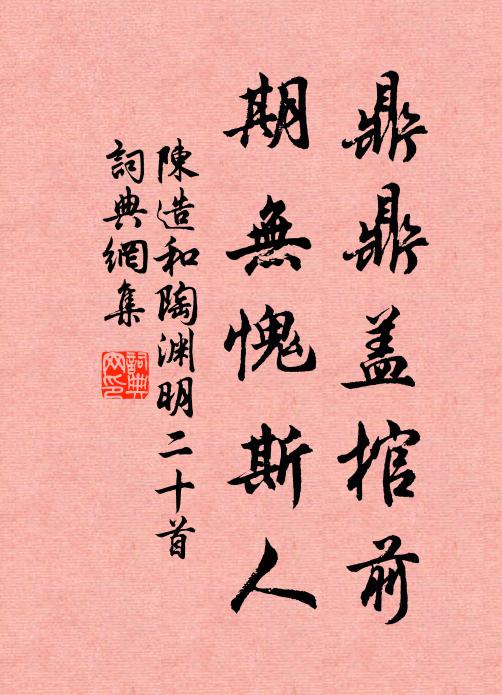 鼎鼎盖棺前
期無愧斯人
陳造和陶渊明二十首
詞典網集
詞典網印